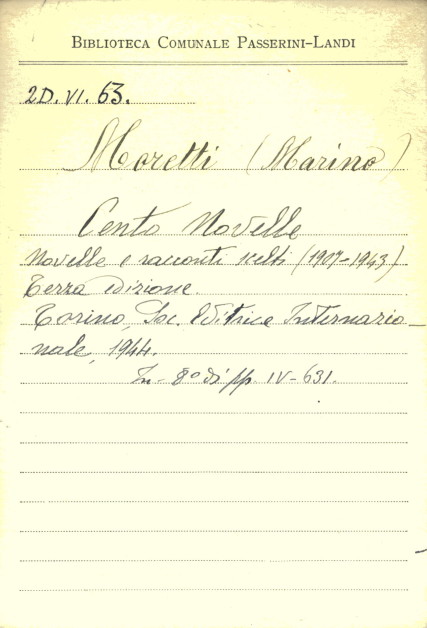 BIBLIOTECA COMUNALE PASSERINI-LANDI
2D. VI. 63.
Moretti (Marino)
Cento Novelle
Novelle e racconti scelti (1907-1943)
Terza edizione.
Torino, Soc. Editrice Internazio-
nale, 1944.
In-8° di pp. IV-631.